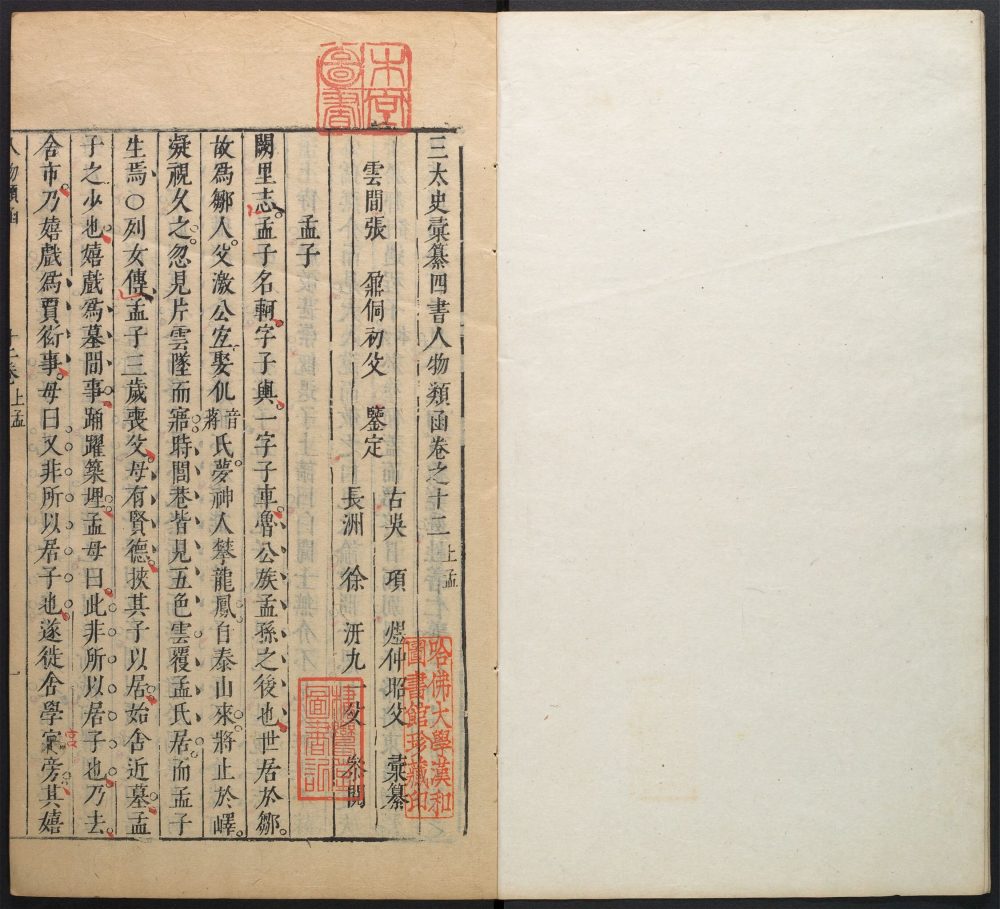 三太史彙纂四書人物類函卷之十二 上孟
古吳 項煜仲昭父 彙纂
雲間張 鼐侗初父 鑒定
長洲 徐汧九一父 叅閱
孟子
闕里志孟子名軻字子輿一字子車魯公族孟孫之後也世居於鄒
故爲鄒人父激公宜娶仉音蔣氏夢神人攀龍鳳自泰山來將止於嶧
凝視久之忽見片雲墜而寤時閭巷皆見五色雲覆孟氏居而孟子
生焉○列女傳孟子三歲喪父母有賢德挾其子以居始舍近墓孟
子之少也嬉戲爲墓間事踊躍築埋孟母曰此非所以居子也乃去
舍市乃嬉戲爲賈衒事母曰又非所以居子也遂徙舍學宮旁其嬉
人物類函 十二卷 上孟 一
圖書
哈佛大學漢和
圖書館珍藏印